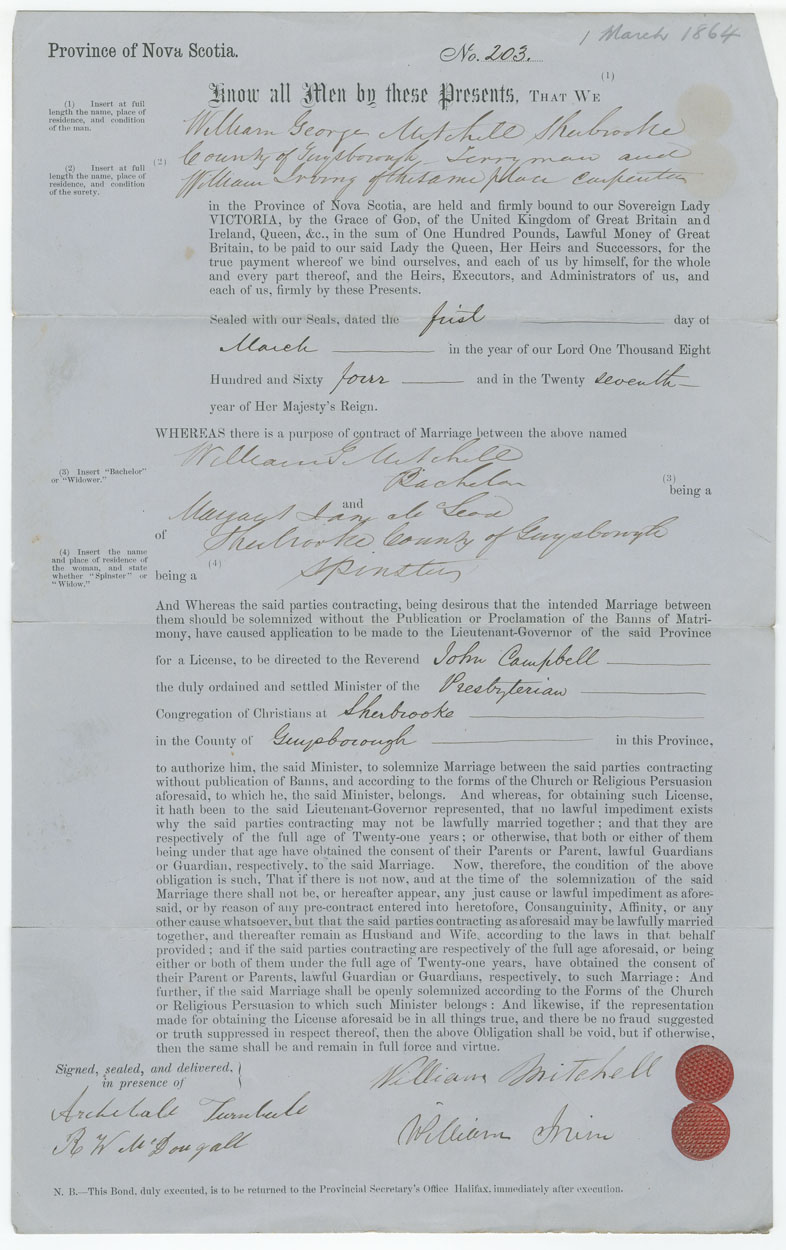 1 March 1864
Province of Nova Scotia.
No. 203.
(1)
Know all Men by these Presents, THAT WE
(1) Insert at full
length the name, place of
residence, and condition
of the man.
William George Mitchell Sherbrooke
(2)
County of Guysborough Ferryman and
(2) Insert at full
length the name, place of
residence, and condition
of the surety.
William Irving of the same place Carpenter
in the Province of Nova Scotia, are held and firmly bound to our Sovereign Lady
VICTORIA, by the Grace of GOD, of the United Kingdom of Great Britain and
Ireland, Queen, &c., in the sum of One Hundred Pounds, Lawful Money of Great
Britain, to be paid to our said Lady the Queen, Her Heirs and Successors, for the
true payment whereof we bind ourselves, and each of us by himself, for the whole
and every part thereof, and the Heirs, Executors, and Administrators of us, and
each of us, firmly by these Presents.
Sealed with our Seals, dated the first day of
March in the year of our Lord One Thousand Eight
Hundred and Sixty four and in the Twenty seventh
year of Her Majesty's Reign.
WHEREAS there is a purpose of contract of Marriage between the above named
William G Mitchell
(3) Insert "Bachelor"
or "Widower."
Bachelor
(3)
being a
and
Margaret Jane Mc Leod
of Sherbrooke County of Guysborough
(4) Insert the name
and place of residence of
the woman, and state
whether "Spinster" or
"Widow."
(4)
being a Spinster
And Whereas the said parties contracting, being desirous that the intended Marriage between
them should be solemnized without the Publication or Proclamation of the Banns of Matri-
mony, have caused application to be made to the Lieutenant-Governor of the said Province
for a License, to be directed to the Reverend John Campbell
the duly ordained and settled Minister of the Presbyterian
Congregation of Christians at Sherbrooke
in the County of Guysborough in this Province,
to authorize him, the said Minister, to solemnize Marriage between the said parties contracting
without publication of Banns, and according to the forms of the Church or Religious Persuasion
aforesaid, to which he, the said Minister, belongs. And whereas, for obtaining such License,
it hath been to the said Lieutenant-Governor represented, that no lawful impediment exists
why the said parties contracting may not be lawfully married together; and that they are
respectively of the full age of Twenty-one years; or otherwise, that both or either of them
being under that age have obtained the consent of their Parents or Parent, lawful Guardians
or Guardian, respectively, to the said Marriage. Now, therefore, the condition of the above
obligation is such, That if there is not now, and at the time of the solemnization of the said
Marriage there shall not be, or hereafter appear, any just cause or lawful impediment as afore-
said, or by reason of any pre-contract entered into heretofore, Consanguinity, Affinity, or any
other cause whatsoever, but that the said parties contracting as aforesaid may be lawfully married
together, and thereafter remain as Husband and Wife, according to the laws in that behalf
provided; and if the said parties contracting are respectively of the full age aforesaid, or being
either or both of them under the full age of Twenty-one years, have obtained the consent of
their Parent or Parents, lawful Guardian or Guardians, respectively, to such Marriage: And
further, if the said Marriage shall be openly solemnized according to the Forms of the Church
or Religious Persuasion to which such Minister belongs: And likewise, if the representation
made for obtaining the License aforesaid be in all things true, and there be no fraud suggested
or truth suppressed in respect thereof, then the above Obligation shall be void, but if otherwise,
then the same shall be and remain in full force and virtue.
Signed, sealed, and delivered,
in presence of
William Mitchell
Archibald Turnbull
William Irvin
R W McDougall
N. B.—This Bond, duly executed, is to be returned to the Provincial Secretary's Office Halifax, immediately after execution.